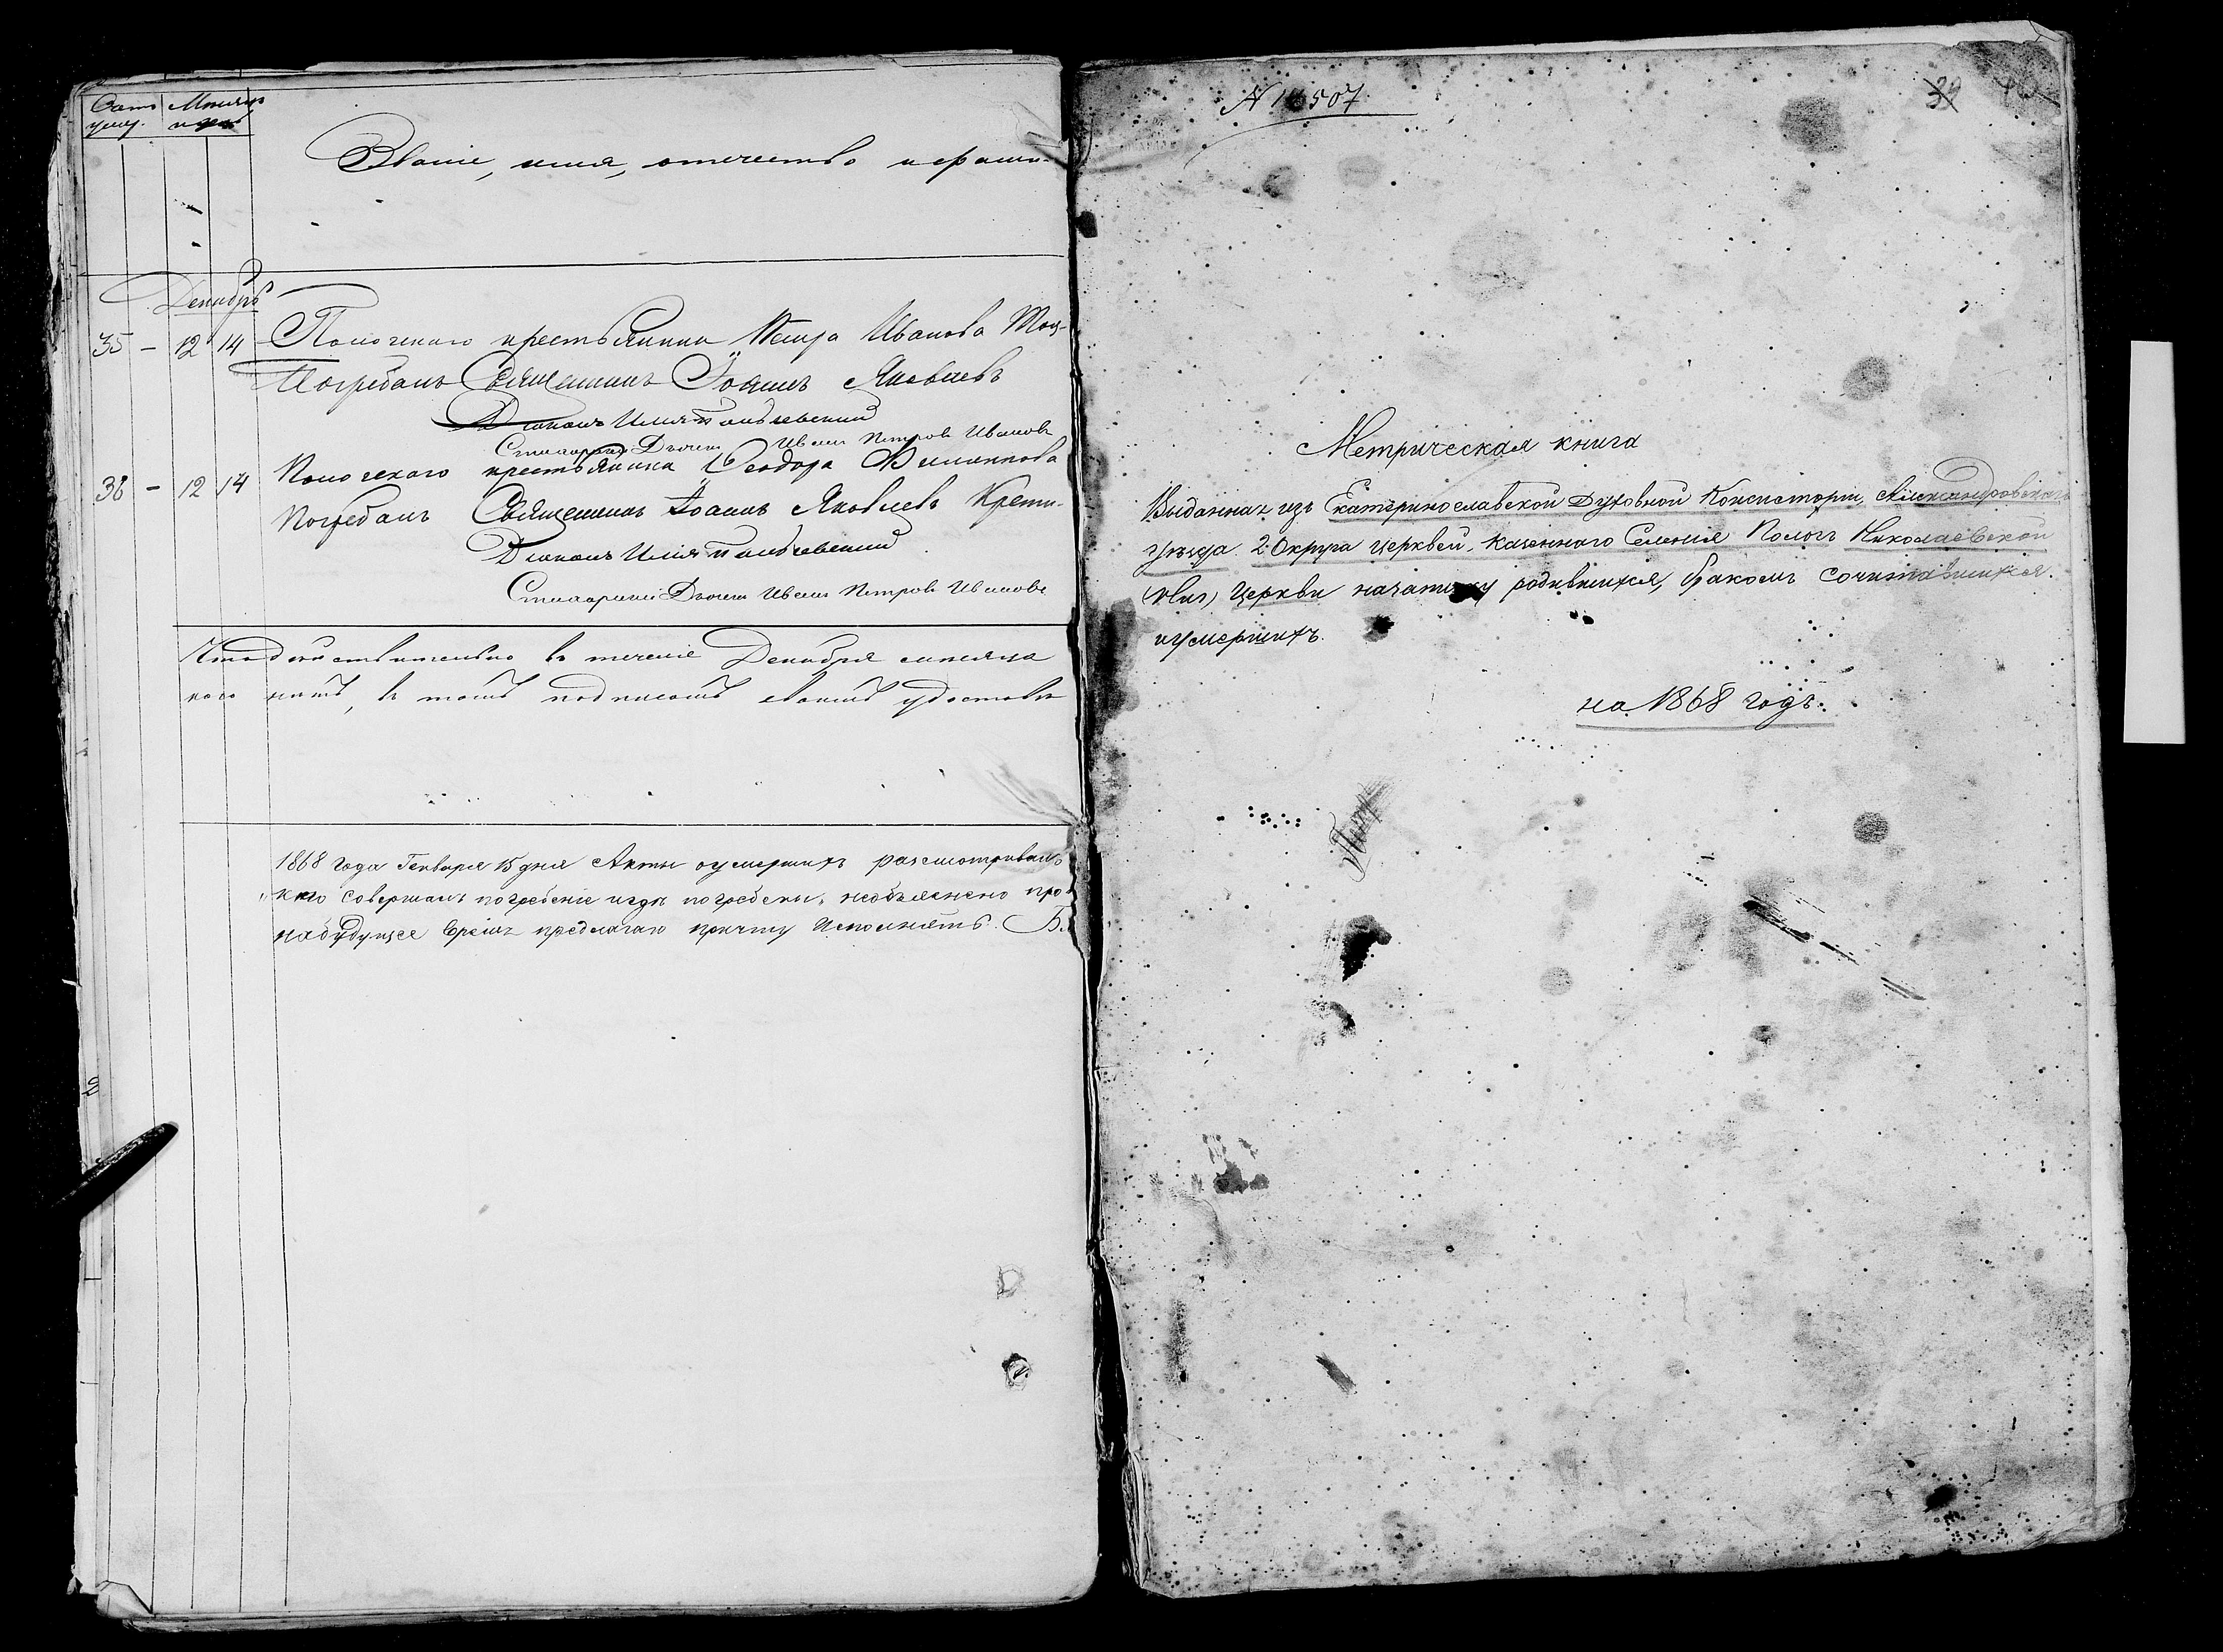 Счетъ Мѣсяцъ
умер. и день
Званіе, имя, отчество и фами-
Декабрь
35 - 12 14 Пологского крестьянина Петра Иванова
Погребалъ Священникъ Іоаннъ Яковлевъ
Дьяконъ Илія
Дьячекъ Иванъ Петровъ Ивановъ
36 - 12 14 Пологского крестьянина Ѳеодора Филиппова
Погребалъ Священникъ Іоаннъ Яковлевъ
Дьяконъ Илія
Дьячекъ Иванъ Петровъ Ивановъ
Что дѣйствительно въ теченіе Декабря мѣсяца
въ томъ подписомъ своимъ удостовѣ
1868 года Генваря 15 дня Акты о умершихъ разсмотривалъ
кто совершалъ погребеніе и гдѣ погребены, необъяснено про
набудущее время предлагаю причту исполнять. Б.
N 16507
39 40
Метрическая книга
Выданная изъ Екатеринославской Духовной Консисторіи, Александровскаго
уѣзда 2. Округа церквей, казеннаго Селенія Пологъ Николаевской
Церкви начатику родившихся, бракомъ сочитавшихся.
и умершихъ.
на 1868 годъ.